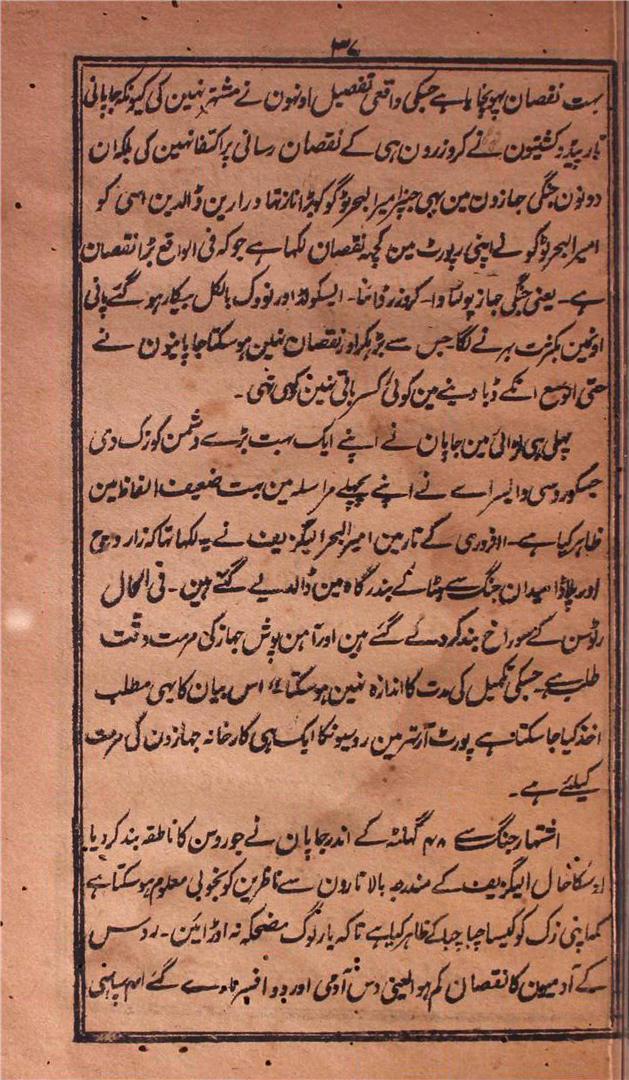 ۳۷
بہت نقصان پہونچایا ہے جسکی واقعی تفصیل اونہون نے مشتہر نہین کی کیونکہ جاپانی
تارپیڈو کشتیون نے کروزرون ہی کے نقصان رسانی پر اکتفا نہین کی بلکہ ان
دونون جنگی جہازون مین بہی جنپر امیرالبحر ٹوگو کو بڑا ناز تہا دراڑین ڈالدین اسی کو
امیرالبحر ٹوگو نے اپنی رپورٹ مین کچہ نقصان لکہا ہے جو کہ فی الواقع بڑا نقصان
ہے۔ یعنی جنگی جہاز پولتاوا۔ کروزر ڈیانا۔ ایسکولڈ اور نووک بالکل بیکار ہو گئے پانی
اونمین بکثرت بہرنے لگا جس سے بڑہکر اور نقصان نہین ہو سکتا جاپانیون نے
حتی الوسع انکے ڈبا دینے مین کوئی کسر باقی نہین رکہی تہی۔
پہلی ہی لڑائی مین جاپان نے اپنے ایک بہت بڑے دشمن کو زک دی
جسکو روسی وایسراے نے اپنے پچہلے مراسلہ مین بہت ضعیف الفاظ مین
ظاہر کیا ہے۔ ۱۱ فروری کے تار مین امیرالبحر الیگزیف نے یہ لکہا تہا کہ زاروچ
اور پلاڈا میدان جنگ سے ہٹا کے بندرگاہ مین ڈالدیے گئے ہین۔ فی الحال
رٹوسن کے سوراخ بند کر دئے گئے ہین اور آہن پوش جہاز کی مرمت دقت
طلب ہے۔ جسکی تکمیل کی مدت کا اندازہ نہین ہو سکتا ہے، اس بیان کا یہی مطلب
اخذ کیا جا سکتا ہے پورٹ آرتہر مین روسیونکا ایک ہی کارخانہ جہازون کی مرمت
کیلئے ہے۔
اشتہار جنگ سے ۴۸ گہنٹہ کے اندر جاپان نے جو روس کا ناطقہ بند کر دیا
اوسکا حال الیگزیف کے مندرجہ بالا تارون سے ناظرین کو بخوبی معلوم ہو سکتا ہے
کہ اپنی زک کو کیسا چبا چبا کے ظاہر کیا ہے تاکہ یار لوگ مضحکہ نہ اوڑائین۔ روس
کے آدمیون کا نقصان کم ہوا یعنی دس آدمی اور دو افسر مارے گئے اہم سپاہی